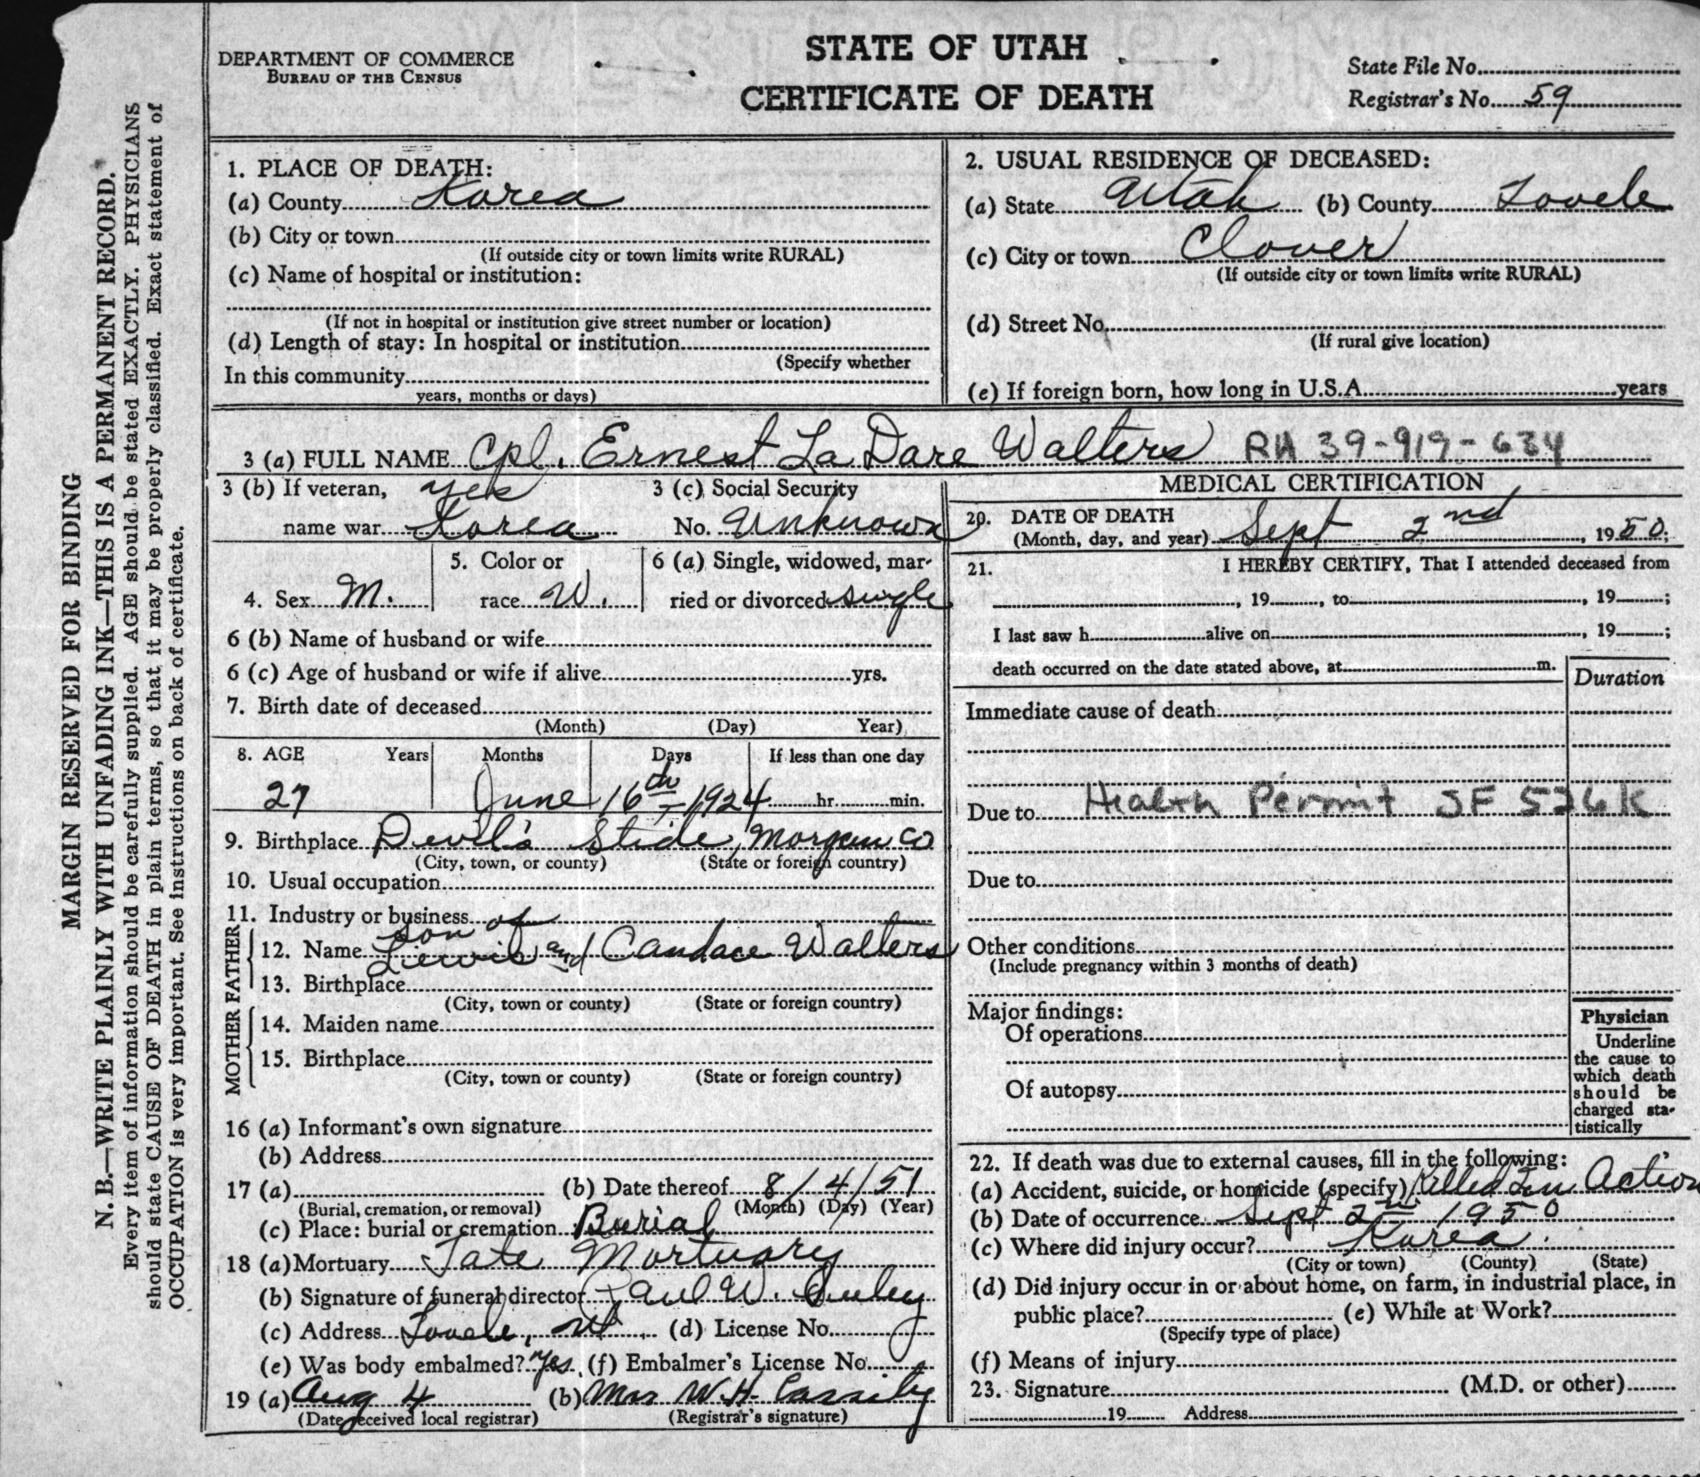 DEPARTMENT OF COMMERCE
BUREAU OF THE CENSUS
STATE OF UTAH
CERTIFICATE OF DEATH
State File No.
Registrar's No. 59
MARGIN RESERVED FOR BINDING
N. B.—WRITE PLAINLY WITH UNFADING INK—THIS IS A PERMANENT RECORD.
Every item of information should be carefully supplied. AGE should be stated EXACTLY. PHYSICIANS
should state CAUSE OF DEATH in plain terms, so that it may be properly classified. Exact statement of
OCCUPATION is very important. See instructions on back of certificate.
1. PLACE OF DEATH:
(a) County Korea
(b) City or town
(If outside city or town limits write RURAL)
(c) Name of hospital or institution:
(If not in hospital or institution give street number or location)
(d) Length of stay: In hospital or institution
(Specify whether
In this community
years, months or days)
2. USUAL RESIDENCE OF DECEASED:
(a) State Utah (b) County Tooele
(c) City or town Clover
(If outside city or town limits write RURAL)
(d) Street No.
(If rural give location)
(e) If foreign born, how long in U.S.A. years
3 (a) FULL NAME Cpl. Ernest La Dare Walters RA 39-919-634
3 (b) If veteran, yes
name war Korea
3 (c) Social Security
No. Unknown
4. Sex M.
5. Color or
race W.
6 (a) Single, widowed, mar-
ried or divorced single
6 (b) Name of husband or wife
6 (c) Age of husband or wife if alive yrs.
7. Birth date of deceased
(Month) (Day) Year)
8. AGE Years Months Days If less than one day
27 June 16th 1924 hr. min.
9. Birthplace Devil's Slide, Morgan Co
(City, town, or county) (State or foreign country)
10. Usual occupation
11. Industry or business
son of
FATHER
12. Name Lewis and Candace Walters
13. Birthplace
(City, town or county) (State or foreign country)
MOTHER
14. Maiden name
15. Birthplace
(City, town or county) (State or foreign country)
16 (a) Informant's own signature
(b) Address
17 (a) (b) Date thereof 8/4/51
(Burial, cremation, or removal) (Month) (Day) (Year)
(c) Place: burial or cremation Burial
18 (a) Mortuary Tate Mortuary
(b) Signature of funeral director Paul W.
(c) Address Tooele, Ut (d) License No.
(e) Was body embalmed? Yes. (f) Embalmer's License No.
19 (a) Aug 4 (b) Mrs W.H. Cassity
(Date received local registrar) (Registrar's signature)
MEDICAL CERTIFICATION
20. DATE OF DEATH
(Month, day, and year) Sept 2nd, 1950.
21. I HEREBY CERTIFY, That I attended deceased from
, 19 , to , 19 ;
I last saw h alive on , 19 ;
death occurred on the date stated above, at m.
Duration
Immediate cause of death
Due to Health Permit SF 526K
Due to
Other conditions
(Include pregnancy within 3 months of death)
Major findings:
Of operations
Of autopsy
Physician
Underline
the cause to
which death
should be
charged sta-
tistically
22. If death was due to external causes, fill in the following:
(a) Accident, suicide, or homicide (specify) Killed In Action
(b) Date of occurrence Sept 2nd 1950
(c) Where did injury occur? Korea.
(City or town) (County) (State)
(d) Did injury occur in or about home, on farm, in industrial place, in
public place? (e) While at Work?
(Specify type of place)
(f) Means of injury
23. Signature (M.D. or other)
19 Address